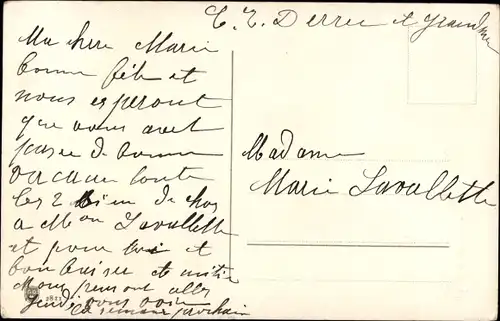 C. E. Derree et Grandme
Ma chere Marie
bonne fête et
nous esperont
que vous avet
passe de bonne
vacance toute
les 2 bien de chos
a Mon Lavallette
et pour toi et
bon baiser et amitie
Nous pensont alles
jeudi vous voir
la semaine prochain
2811
Madame
Marie Lavallette